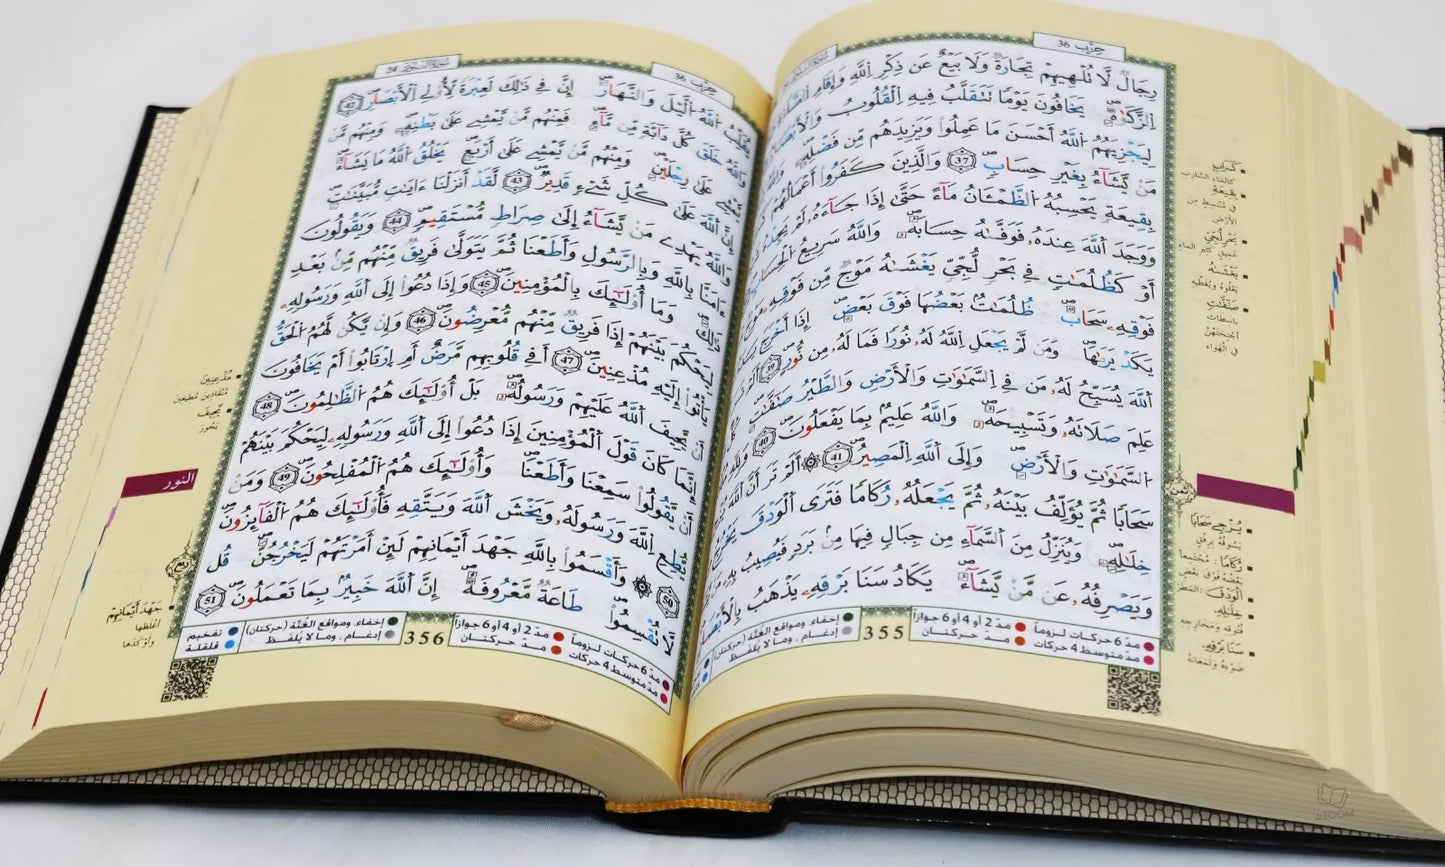 حِزْب 36
رِجَالٌ لَّا تُلْهِيهِمْ تِجَٰرَةٌ وَلَا بَيْعٌ عَن ذِكْرِ ٱللَّهِ وَإِقَامِ
ٱلزَّكَوٰةِ يَخَافُونَ يَوْمًا تَتَقَلَّبُ فِيهِ ٱلْقُلُوبُ
لِيَجْزِيَهُمُ ٱللَّهُ أَحْسَنَ مَا عَمِلُوا۟ وَيَزِيدَهُم مِّن فَضْلِهِۦ
مَن يَشَآءُ بِغَيْرِ حِسَابٍ 37 وَٱلَّذِينَ كَفَرُوٓا۟ أَعْمَٰلُهُمْ
بِقِيعَةٍ يَحْسَبُهُ ٱلظَّمْـَٔانُ مَآءً حَتَّىٰٓ إِذَا جَآءَهُۥ لَمْ يَجِدْهُ
وَوَجَدَ ٱللَّهَ عِندَهُۥ فَوَفَّىٰهُ حِسَابَهُۥ وَٱللَّهُ سَرِيعُ ٱلْحِسَابِ
أَوْ كَظُلُمَٰتٍ فِى بَحْرٍ لُّجِّىٍّ يَغْشَىٰهُ مَوْجٌ مِّن فَوْقِهِۦ
فَوْقِهِۦ سَحَابٌ ظُلُمَٰتٌۢ بَعْضُهَا فَوْقَ بَعْضٍ إِذَآ أَخْرَجَ
يَكَدْ يَرَىٰهَا وَمَن لَّمْ يَجْعَلِ ٱللَّهُ لَهُۥ نُورًا فَمَا لَهُۥ مِن نُّورٍ
ٱللَّهَ يُسَبِّحُ لَهُۥ مَن فِى ٱلسَّمَٰوَٰتِ وَٱلْأَرْضِ وَٱلطَّيْرُ صَٰٓفَّٰتٍ
عَلِمَ صَلَاتَهُۥ وَتَسْبِيحَهُۥ وَٱللَّهُ عَلِيمٌۢ بِمَا يَفْعَلُونَ
ٱلسَّمَٰوَٰتِ وَٱلْأَرْضِ وَإِلَى ٱللَّهِ ٱلْمَصِيرُ أَلَمْ تَرَ أَنَّ ٱللَّهَ
سَحَابًا ثُمَّ يُؤَلِّفُ بَيْنَهُۥ ثُمَّ يَجْعَلُهُۥ رُكَامًا فَتَرَى ٱلْوَدْقَ يَخْرُجُ
خِلَٰلِهِۦ وَيُنَزِّلُ مِنَ ٱلسَّمَآءِ مِن جِبَالٍ فِيهَا مِنۢ بَرَدٍ فَيُصِيبُ بِهِۦ
وَيَصْرِفُهُۥ عَن مَّن يَشَآءُ يَكَادُ سَنَا بَرْقِهِۦ يَذْهَبُ بِٱلْأَبْصَٰرِ
مدّ 6 حركات لزوماً
مدّ 2 أو 4 أو 6 جوازاً
إخفاء، ومواقع الغُنَّة (حركتان)
مدّ متوسط 4 حركات
مدّ حركتان
إدغام، وما لا يُلفظ
355
كَسَرَابٍ
بِقِيعَةٍ
بَحْرٍ لُّجِّىٍّ
يَغْشَىٰهُ
يَعْلُوهُ وَيُغَطِّيهِ
صَٰٓفَّٰتٍ
بَاسِطَاتٍ
أَجْنِحَتَهُنَّ
فِي الْهَوَاءِ
يُزْجِى سَحَابًا
يَسُوقُهُ بِرِفْقٍ
رُكَامًا : مُجْتَمِعاً
بَعْضُهُ فَوْقَ بَعْضٍ
ٱلْوَدْقَ : المَطَرَ
خِلَٰلِهِۦ
سَنَا بَرْقِهِۦ
ضَوْءُهُ وَلَمَعَانُهُ
حِزْب 36
يُقَلِّبُ ٱللَّهُ ٱلَّيْلَ وَٱلنَّهَارَ إِنَّ فِى ذَٰلِكَ لَعِبْرَةً لِّأُو۟لِى ٱلْأَبْصَٰرِ
وَٱللَّهُ خَلَقَ كُلَّ دَآبَّةٍ مِّن مَّآءٍ فَمِنْهُم مَّن يَمْشِى عَلَىٰ بَطْنِهِۦ وَمِنْهُم مَّن
يَمْشِى عَلَىٰ رِجْلَيْنِ وَمِنْهُم مَّن يَمْشِى عَلَىٰٓ أَرْبَعٍ يَخْلُقُ ٱللَّهُ مَا يَشَآءُ
إِنَّ ٱللَّهَ عَلَىٰ كُلِّ شَىْءٍ قَدِيرٌ لَّقَدْ أَنزَلْنَآ ءَايَٰتٍ مُّبَيِّنَٰتٍ
وَٱللَّهُ يَهْدِى مَن يَشَآءُ إِلَىٰ صِرَٰطٍ مُّسْتَقِيمٍ وَيَقُولُونَ
ءَامَنَّا بِٱللَّهِ وَبِٱلرَّسُولِ وَأَطَعْنَا ثُمَّ يَتَوَلَّىٰ فَرِيقٌ مِّنْهُم مِّنۢ بَعْدِ
ذَٰلِكَ وَمَآ أُو۟لَٰٓئِكَ بِٱلْمُؤْمِنِينَ 45 وَإِذَا دُعُوٓا۟ إِلَى ٱللَّهِ وَرَسُولِهِۦ
لِيَحْكُمَ بَيْنَهُمْ إِذَا فَرِيقٌ مِّنْهُم مُّعْرِضُونَ 46 وَإِن يَكُن لَّهُمُ ٱلْحَقُّ
يَأْتُوٓا۟ إِلَيْهِ مُذْعِنِينَ 47 أَفِى قُلُوبِهِم مَّرَضٌ أَمِ ٱرْتَابُوٓا۟ أَمْ يَخَافُونَ
أَن يَحِيفَ ٱللَّهُ عَلَيْهِمْ وَرَسُولُهُۥ بَلْ أُو۟لَٰٓئِكَ هُمُ ٱلظَّٰلِمُونَ 48
إِنَّمَا كَانَ قَوْلَ ٱلْمُؤْمِنِينَ إِذَا دُعُوٓا۟ إِلَى ٱللَّهِ وَرَسُولِهِۦ لِيَحْكُمَ بَيْنَهُمْ
أَن يَقُولُوا۟ سَمِعْنَا وَأَطَعْنَا وَأُو۟لَٰٓئِكَ هُمُ ٱلْمُفْلِحُونَ 49 وَمَن
يُطِعِ ٱللَّهَ وَرَسُولَهُۥ وَيَخْشَ ٱللَّهَ وَيَتَّقْهِ فَأُو۟لَٰٓئِكَ هُمُ ٱلْفَآئِزُونَ
50 وَأَقْسَمُوا۟ بِٱللَّهِ جَهْدَ أَيْمَٰنِهِمْ لَئِنْ أَمَرْتَهُمْ لَيَخْرُجُنَّ قُل
لَّا تُقْسِمُوا۟ طَاعَةٌ مَّعْرُوفَةٌ إِنَّ ٱللَّهَ خَبِيرٌۢ بِمَا تَعْمَلُونَ 51
مدّ 6 حركات لزوماً
مدّ 2 أو 4 أو 6 جوازاً
إخفاء، ومواقع الغُنَّة (حركتان)
تفخيم
مدّ متوسط 4 حركات
مدّ حركتان
إدغام، وما لا يُلفظ
قلقلة
356
مُذْعِنِينَ
مُنْقَادِينَ مُطِيعِينَ
يَحِيفَ
يَجُورَ
النور
جَهْدَ أَيْمَٰنِهِمْ
أَغْلَظَهَا
وَأَوْكَدَهَا